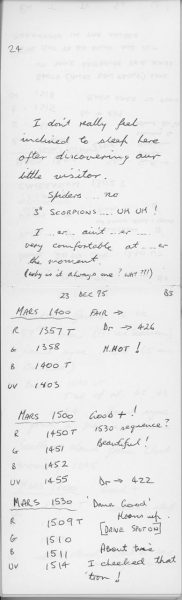 24
I don't really feel
inclined to sleep here
after discovering our
little visitor.
Spiders .. no
3" SCORPIONS .... UH UH!
I .. er .. ain't .. er ...
very comfortable at ... er
the moment.
(why is it always me? WHY?!!)
23 DEC 75 BS
MARS 1400 FAIR →
R 1357 T Dr → 426
G 1358 H.HOT!
B 1400 T
UV 1403
MARS 1500 Good +!
R 1450 T 1530 sequence?
G 1451 Beautiful!
B 1452
UV 1455 Dr → 422
MARS 1530 'Dawe Good'
R 1509 T up.
G 1510 [DAWE SPOT ON]
B 1511 About time
UV 1514 I checked that
'tron!